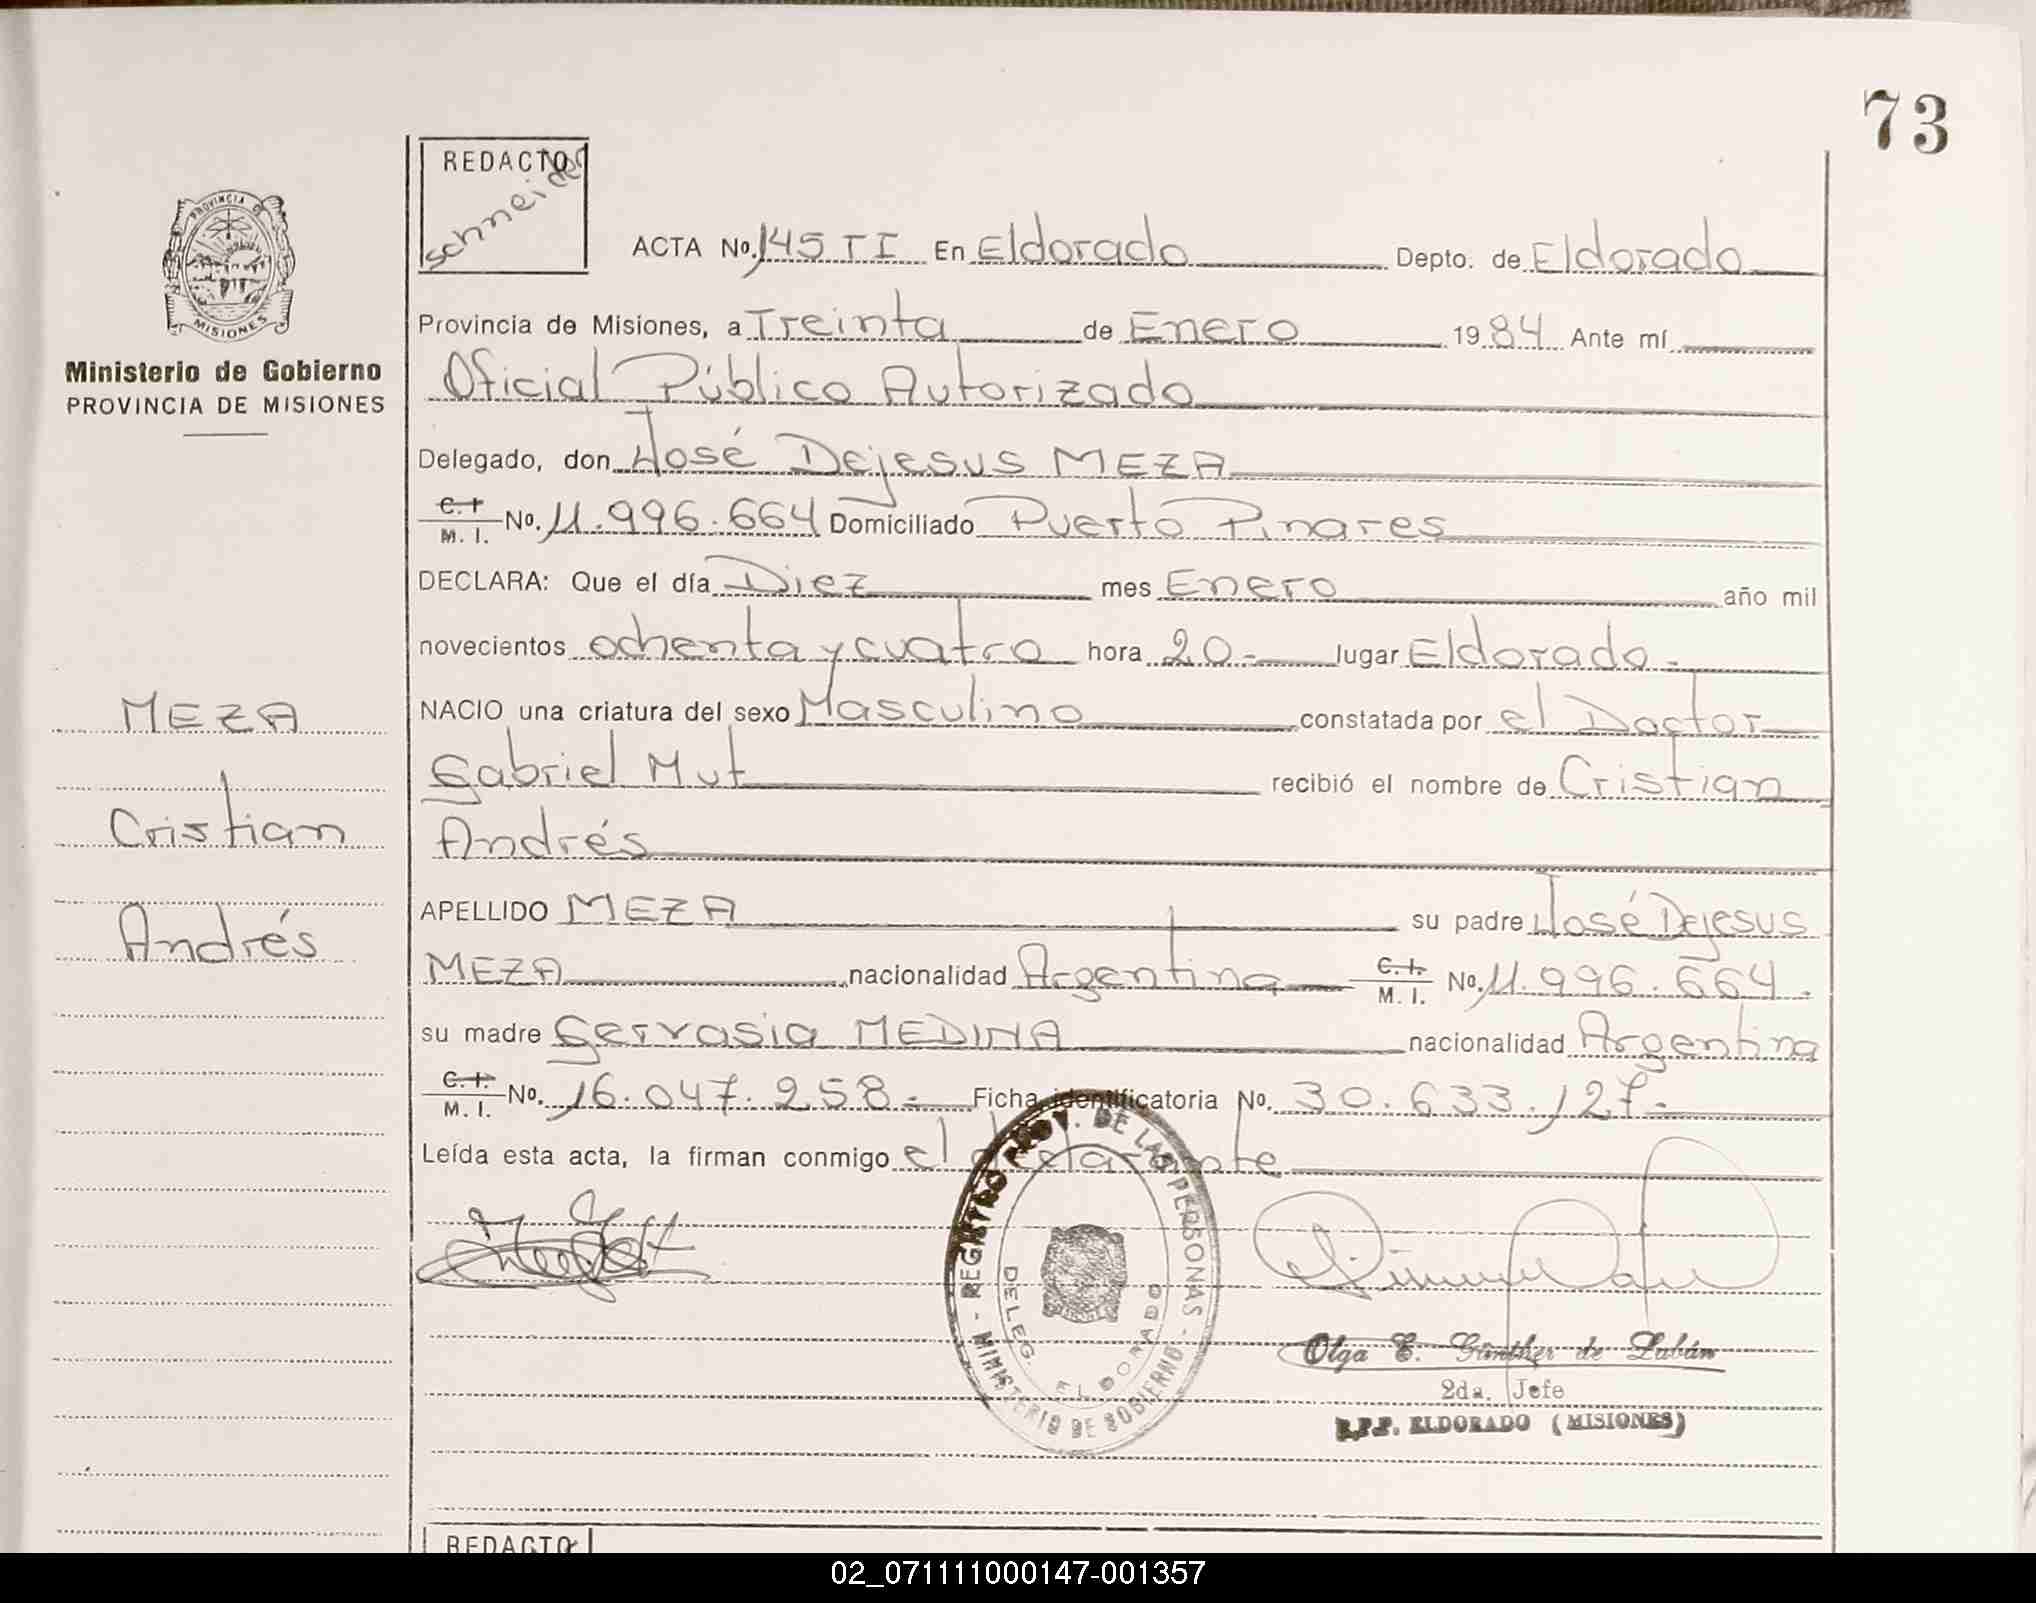 73
REDACTO
Schneider
PROVINCIA DE
MISIONES
Ministerio de Gobierno
PROVINCIA DE MISIONES
ACTA No. 145 TI En Eldorado Depto. de Eldorado
Provincia de Misiones, a Treinta de Enero 1984 Ante mí
Oficial Público Autorizado
Delegado, don José Dejesus MEZA
C.I. M. I. No. 11.996.664 Domiciliado Puerto Pinares
DECLARA: Que el día Diez mes Enero año mil
novecientos ochenta y cuatro hora 20.- lugar Eldorado.-
NACIO una criatura del sexo Masculino constatada por el Doctor
Gabriel Mut recibió el nombre de Cristian
Andrés
APELLIDO MEZA su padre José Dejesus
MEZA nacionalidad Argentina C.I. M. I. No. 11.996.664.
su madre Gervasia MEDINA nacionalidad Argentina
C.I. M. I. No. 16.047.258.- Ficha identificatoria No. 30.633.127.-
Leída esta acta, la firman conmigo el declarante
MEZA
Cristian
Andrés
REGISTRO PROV. DE LAS PERSONAS
MINISTERIO DE GOBIERNO
DELEG. ELDORADO
Olga E. Günther de Lubán
2da. Jefe
R.P.P. ELDORADO (MISIONES)
REDACTO
02_071111000147-001357